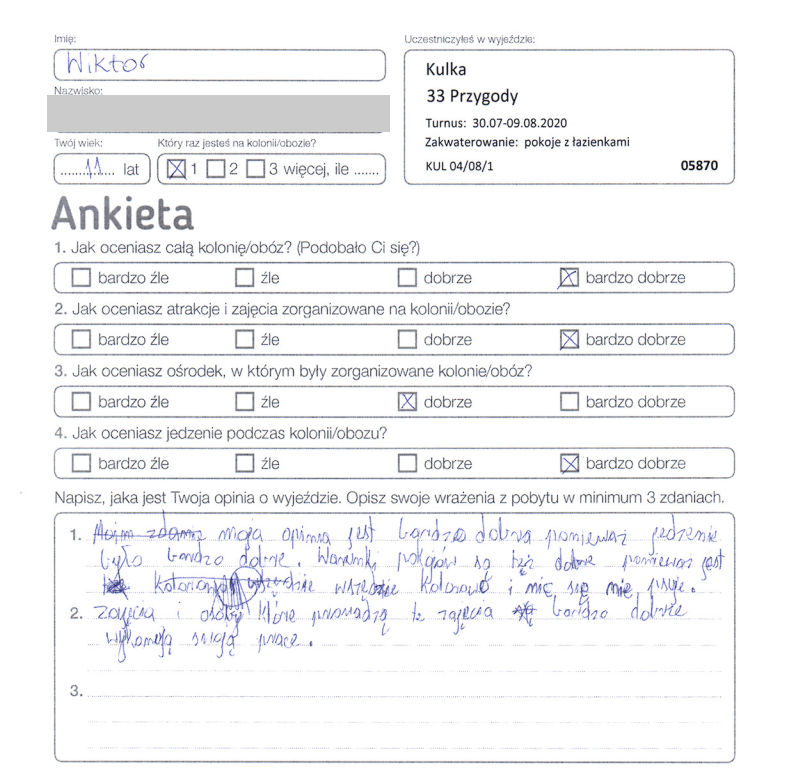 Imię:
Wiktor
Nazwisko:
Uczestniczyłeś w wyjeździe:
Kulka
33 Przygody
Turnus: 30.07-09.08.2020
Zakwaterowanie: pokoje z łazienkami
KUL 04/08/1 05870
Twój wiek:
......11.... lat
Który raz jesteś na kolonii/obozie?
1 2 3 więcej, ile .......
Ankieta
1. Jak oceniasz całą kolonię/obóz? (Podobało Ci się?)
bardzo źle źle dobrze bardzo dobrze
2. Jak oceniasz atrakcje i zajęcia zorganizowane na kolonii/obozie?
bardzo źle źle dobrze bardzo dobrze
3. Jak oceniasz ośrodek, w którym były zorganizowane kolonie/obóz?
bardzo źle źle dobrze bardzo dobrze
4. Jak oceniasz jedzenie podczas kolonii/obozu?
bardzo źle źle dobrze bardzo dobrze
Napisz, jaka jest Twoja opinia o wyjeździe. Opisz swoje wrażenia z pobytu w minimum 3 zdaniach.
1. moja opinia jest bardzo dobra ponieważ jedzenie
było bardzo dobre. Warunki pokojów są też dobre ponieważ jest
wszędzie kolorowo i nic się nie psuje.
2. Zajęcia i osoby które prowadzą te zajęcia bardzo dobrze
wykonują swoją prace.
3.